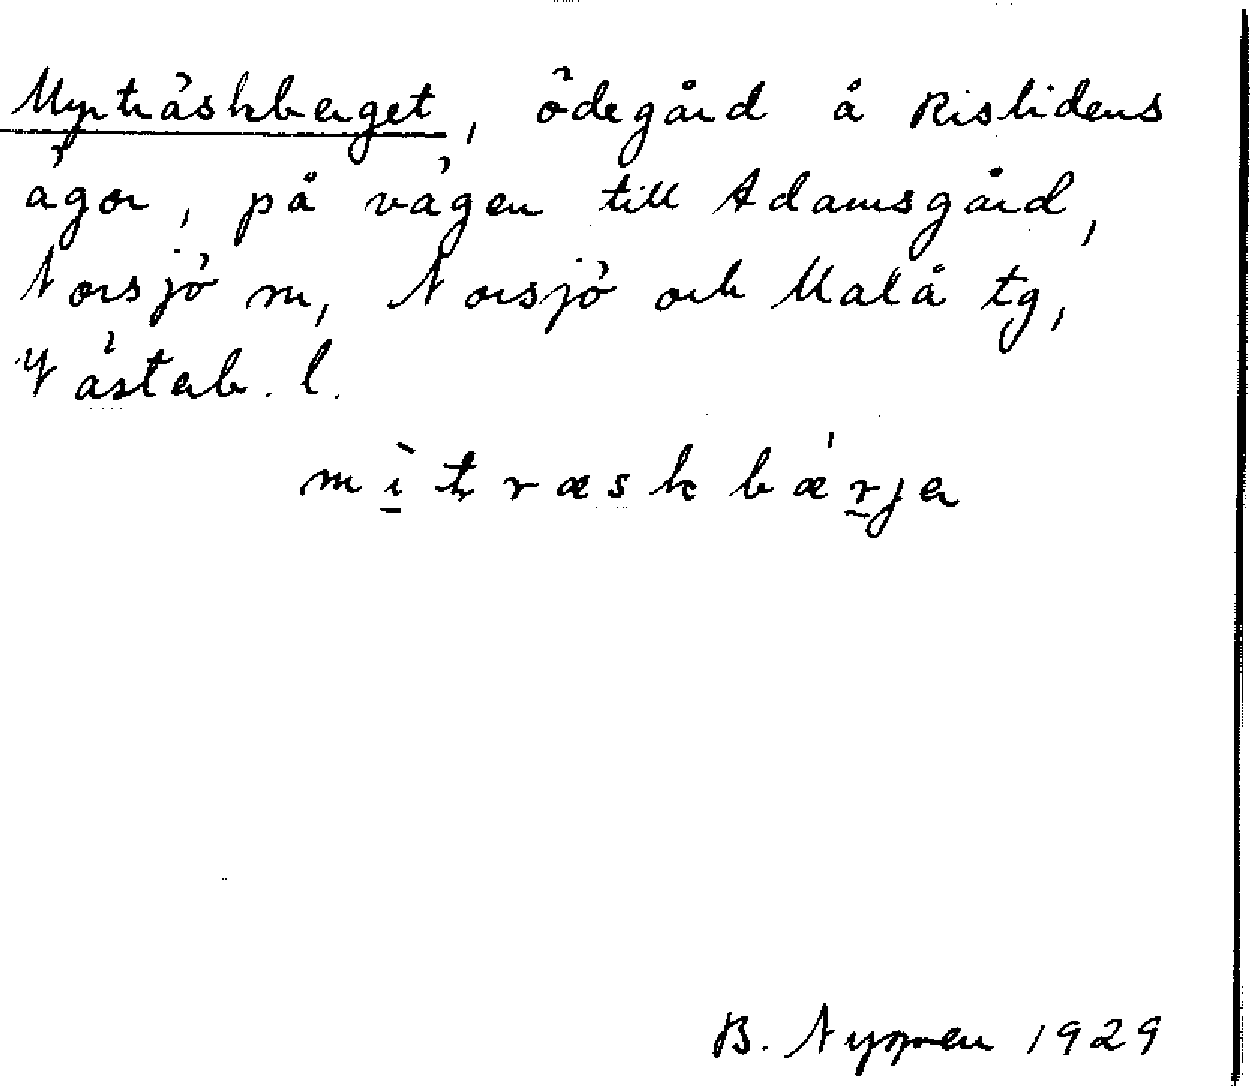 Myrträskberget, ödegård å Rislidens
ägor, på vägen till Adamsgård,
Norsjö sn, Norsjö och Malå tg,
Västerb. l.
mı̀træskbæ'rja
B. 1929